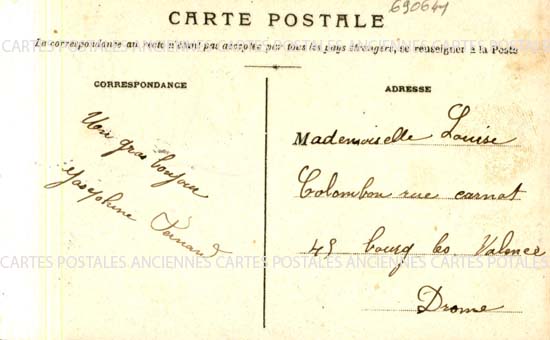 690641
CARTE POSTALE
La correspondance au recto n'étant pas acceptée par tous les pays étrangers, se renseigner à la Poste
CORRESPONDANCE
ADRESSE
Un gros bonjour
Joséphine
Mademoiselle Louise
Colombon rue carnot
45 bourg les Valence
Drome
CARTES POSTALES ANCIENNES CARTES POSTALES ANCIENNES CARTES POSTALES
CARTES POSTALES ANCIENNES CARTES POSTALES ANCIENNES CARTES POSTALES